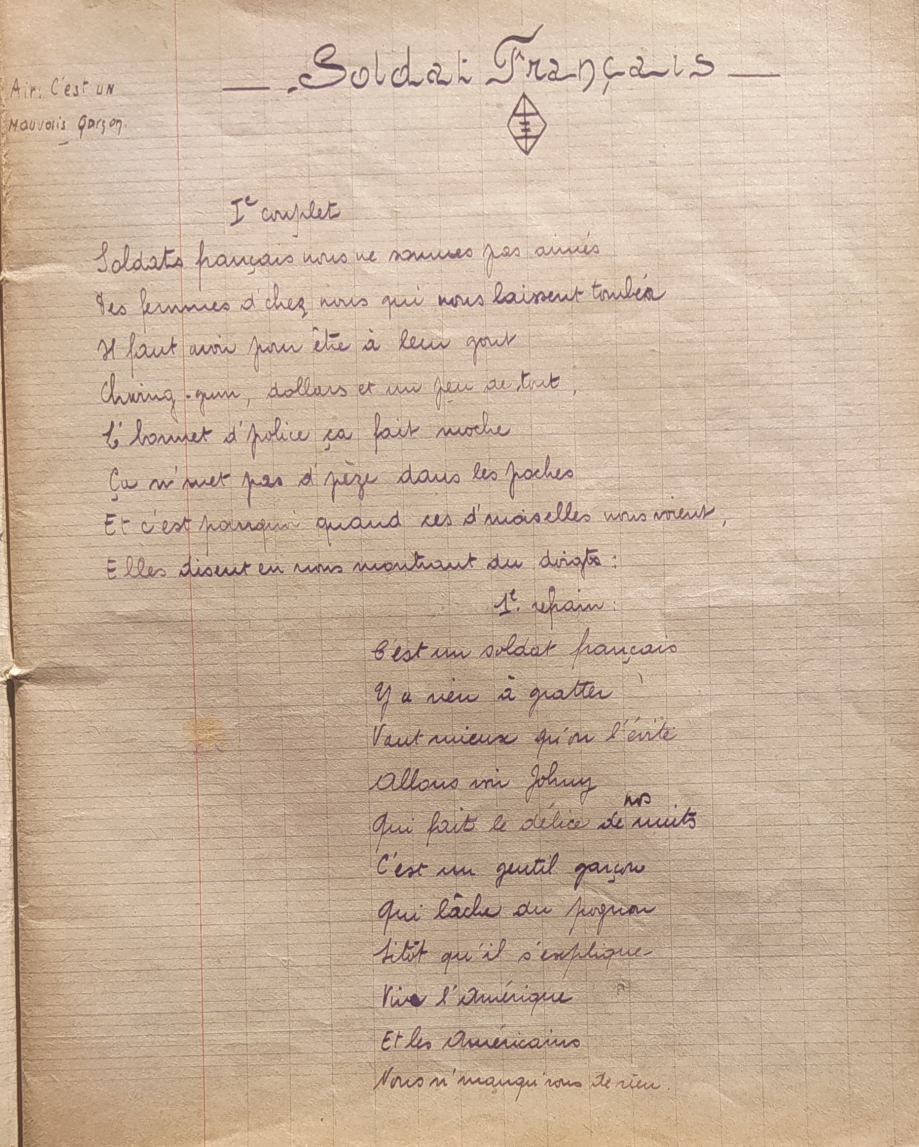 Soldat Français
Air: C'est un
Mauvais Garçon.
Ie couplet
Soldats français nous ne sommes pas aimés
Des femmes d'chez nous qui nous laissent tomber
Il faut avoir pour être à leur gout
Chwing-gum, dollars et un peu de tout,
L'bonnet d'police ça fait moche
Ça n'met pas d'pèze dans les poches
Et c'est pourquoi quand ces d'moiselles nous voient,
Elles disent en nous montrant du doigts:
1e. refrain:
C'est un soldat français
Y a rien à gratter
Vaut mieux qu'on l'évite
Allons voir Johny
Qui fait le délice de nos nuits
C'est un gentil garçon
Qui lâche du pognon
Sitôt qu'il s'explique
Vive l'Amérique
Et les Américains
Nous n'manqu'rons de rien.